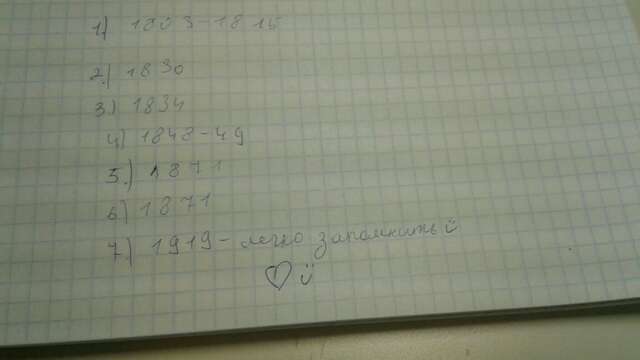 1) 1803-1815
2) 1830
3) 1834
4) 1848-49
5.) 1871
6) 1871
7.) 1919 - легко запомнить